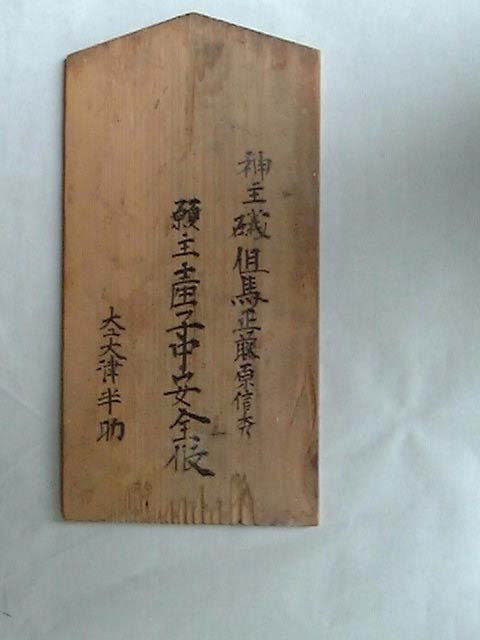 神主磯但馬正藤原信秀
願主産子中安全夜
大工大津半助